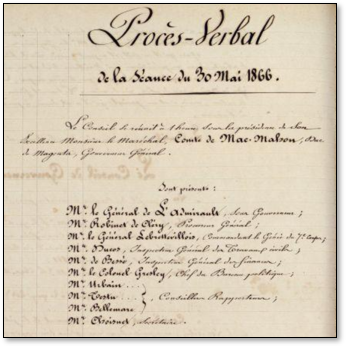 Procès-Verbal
de la Séance du 30 Mai 1866.
Le Conseil se réunit à 1 heure, sous la présidence de Son
Excellence Monsieur le Maréchal, Comte de Mac-Mahon, Duc
de Magenta, Gouverneur Général.
Sont présents :
Mr. le Général de L'Admirault, Sous Gouverneur ;
Mr. Robinet de Cléry, Procureur Général ;
Mr. le Général Lebrettevillois, Commandant le Génie du 7e Corps ;
Mr. Ducos, Inspecteur Général des Travaux civils ;
Mr. de Inspecteur Général des finances ;
Mr. le Colonel Chef du Bureau politique ;
Mr. Urbain
Mr. Testu Conseillers Rapporteurs ;
Mr. Bellemare
Mr. Choisnet, Secrétaire.